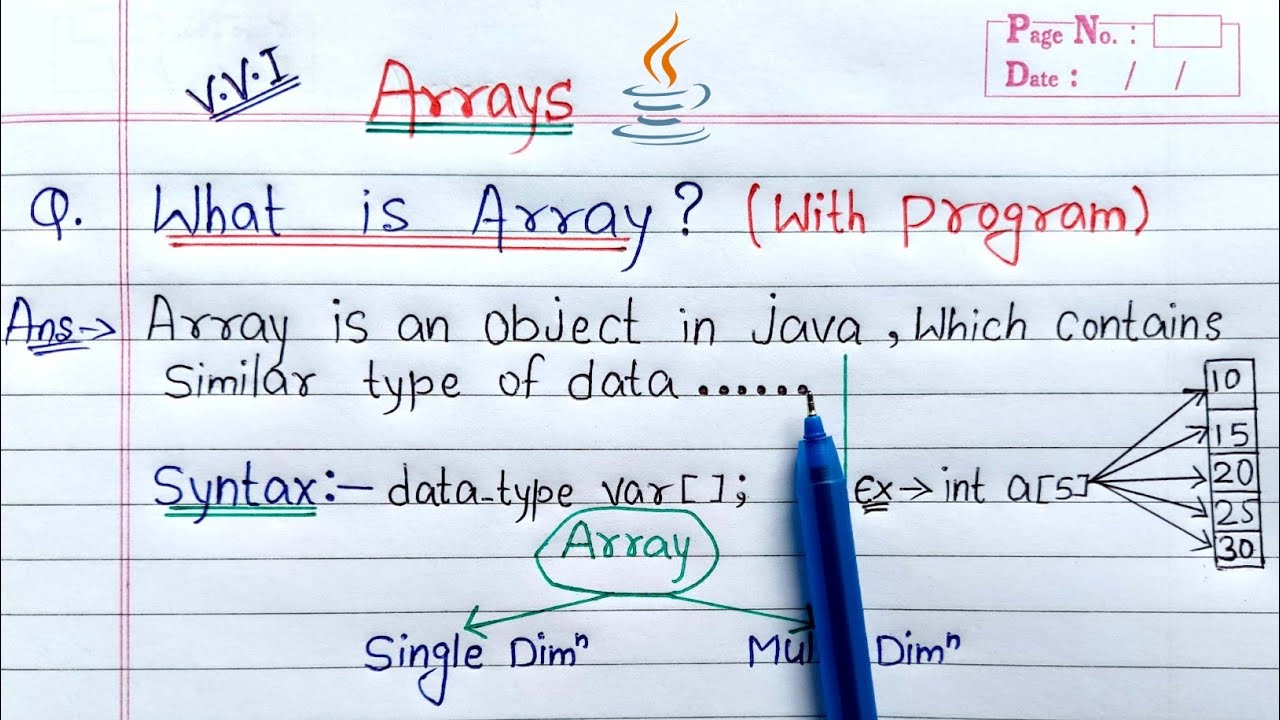 Page No. :
Date : / /
V.V.I
Arrays
Q. What is Array? (With program)
Ans→ Array is an object in java, Which contains
Similar type of data ......
Syntax:- data-type var[]; ex→ int a[5]
10
15
20
25
30
Array
Single Dimⁿ Dimⁿ